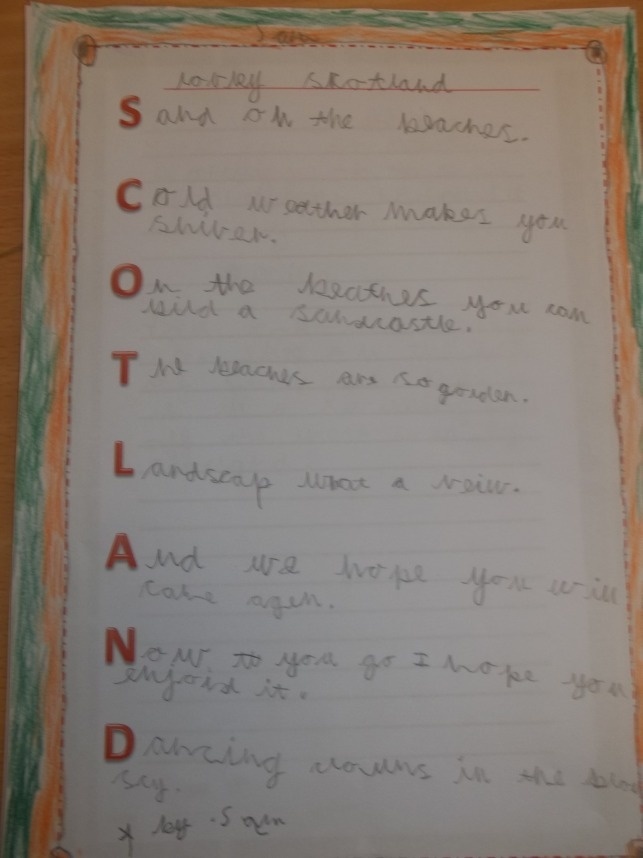 Sam
lovley Skotland
Sand on the beaches.
Cold weather makes you
shiver.
On the beathes you can
bild a sandcastle.
The beaches are so golden.
Landscap what a veiw.
And we hope you will
come agen.
Now to you go I hope you
enjoid it.
Dancing clouns in the bloo
scy.
* by Sam